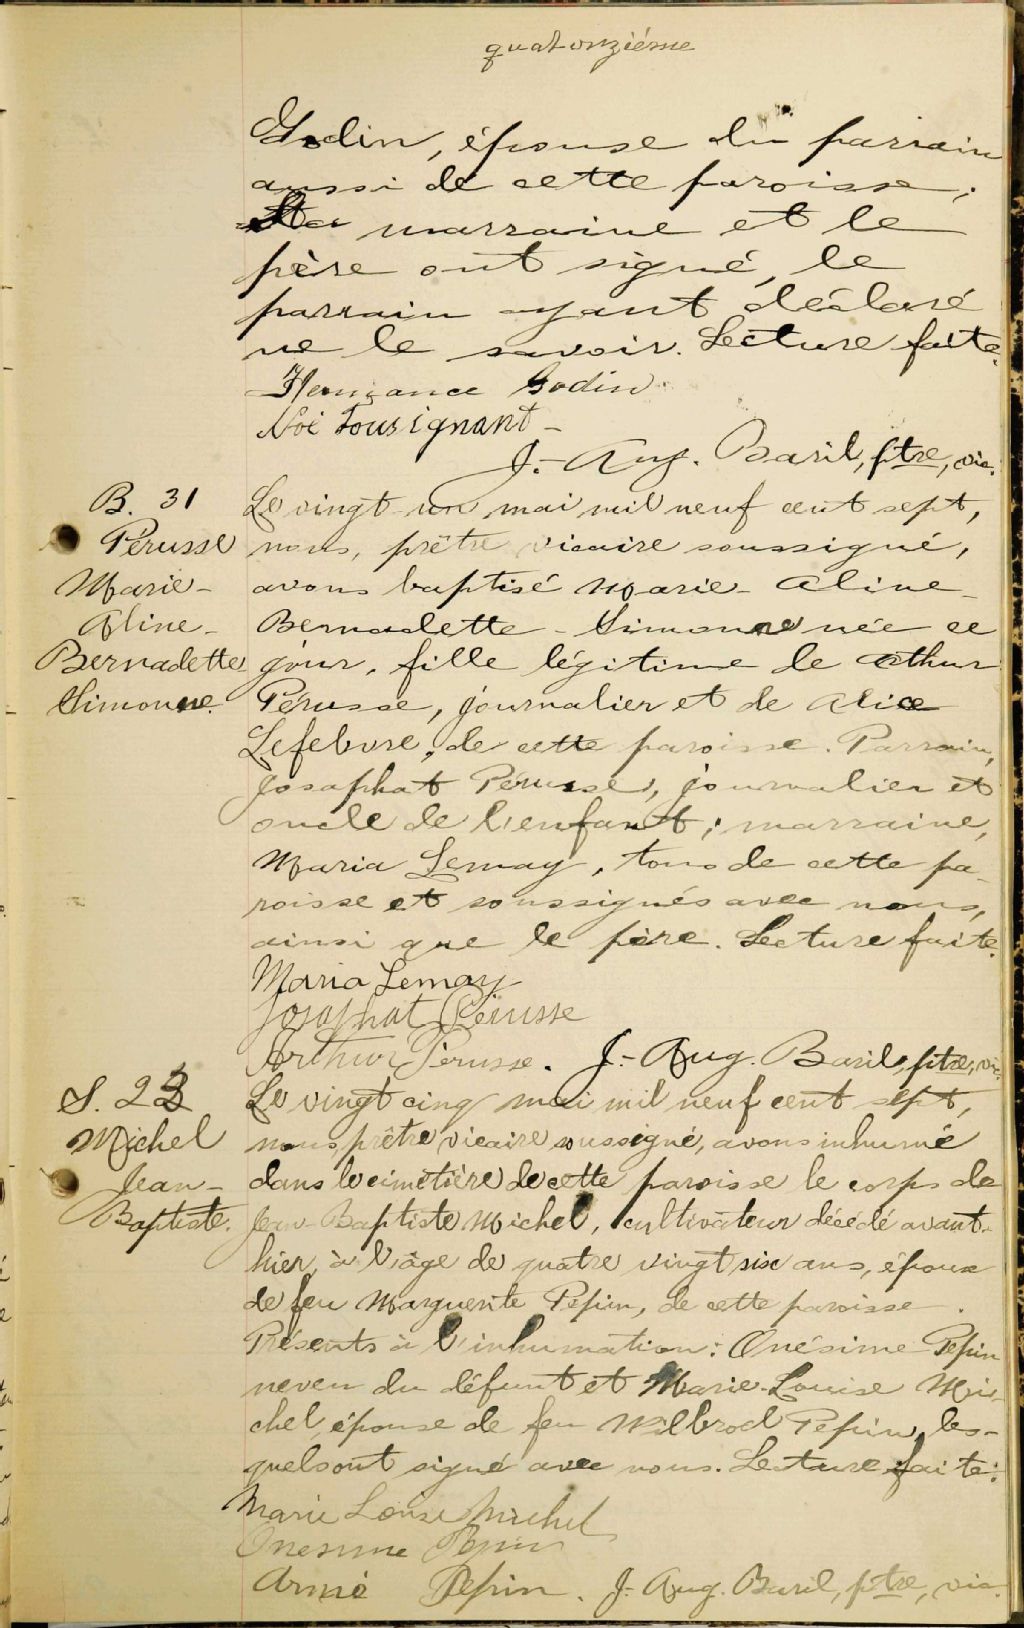 quatorzième
Godin, épouse du parrain
aussi de cette paroisse;
La marraine et le
père ont signé, le
parrain ayant déclaré
ne le savoir. Lecture faite.
Hermance Godin
Noé Tousignant -
J.- Aug. Baril, ptre, vic.
B. 31
Pérusse
Marie-
Aline-
Bernadette
Simonne.
Le vingt-un mai mil neuf cent sept,
nous, prêtre vicaire soussigné,
avons baptisé Marie-Aline-
Bernadette-Simonne née ce
jour, fille légitime de Athur
Pérusse, journalier et de Alice
Lefebvre, de cette paroisse. Parrain,
Josaphat Pérusse, journalier et
oncle de l'enfant; marraine,
Maria Lemay, tous de cette pa-
roisse et soussignés avec nous,
ainsi que le père. Lecture faite.
Maria Lemay
Josaphat Pérusse
Arthur Pérusse. J.- Aug. Baril, ptre, vic.
S. 23
Michel
Jean-
Baptiste.
Le vingt cinq mai mil neuf cent sept,
nous, prêtre vicaire soussigné, avons inhumé
dans le cimetière de cette paroisse le corps de
Jean-Baptiste Michel, cultivateur décédé avant-
hier, à l'âge de quatre vingt six ans, époux
de feu Marguerite Pepin, de cette paroisse.
Présents à l'inhumation: Onésime Pepin
neveu du défunt et Marie-Louise Mi-
chel, épouse de feu Wilbrod Pepin, les-
quels ont signé avec nous. Lecture faite.
Marie Louise Michel
Onesime Pepin
Aimé Pepin. J.- Aug. Baril, ptre, vic.